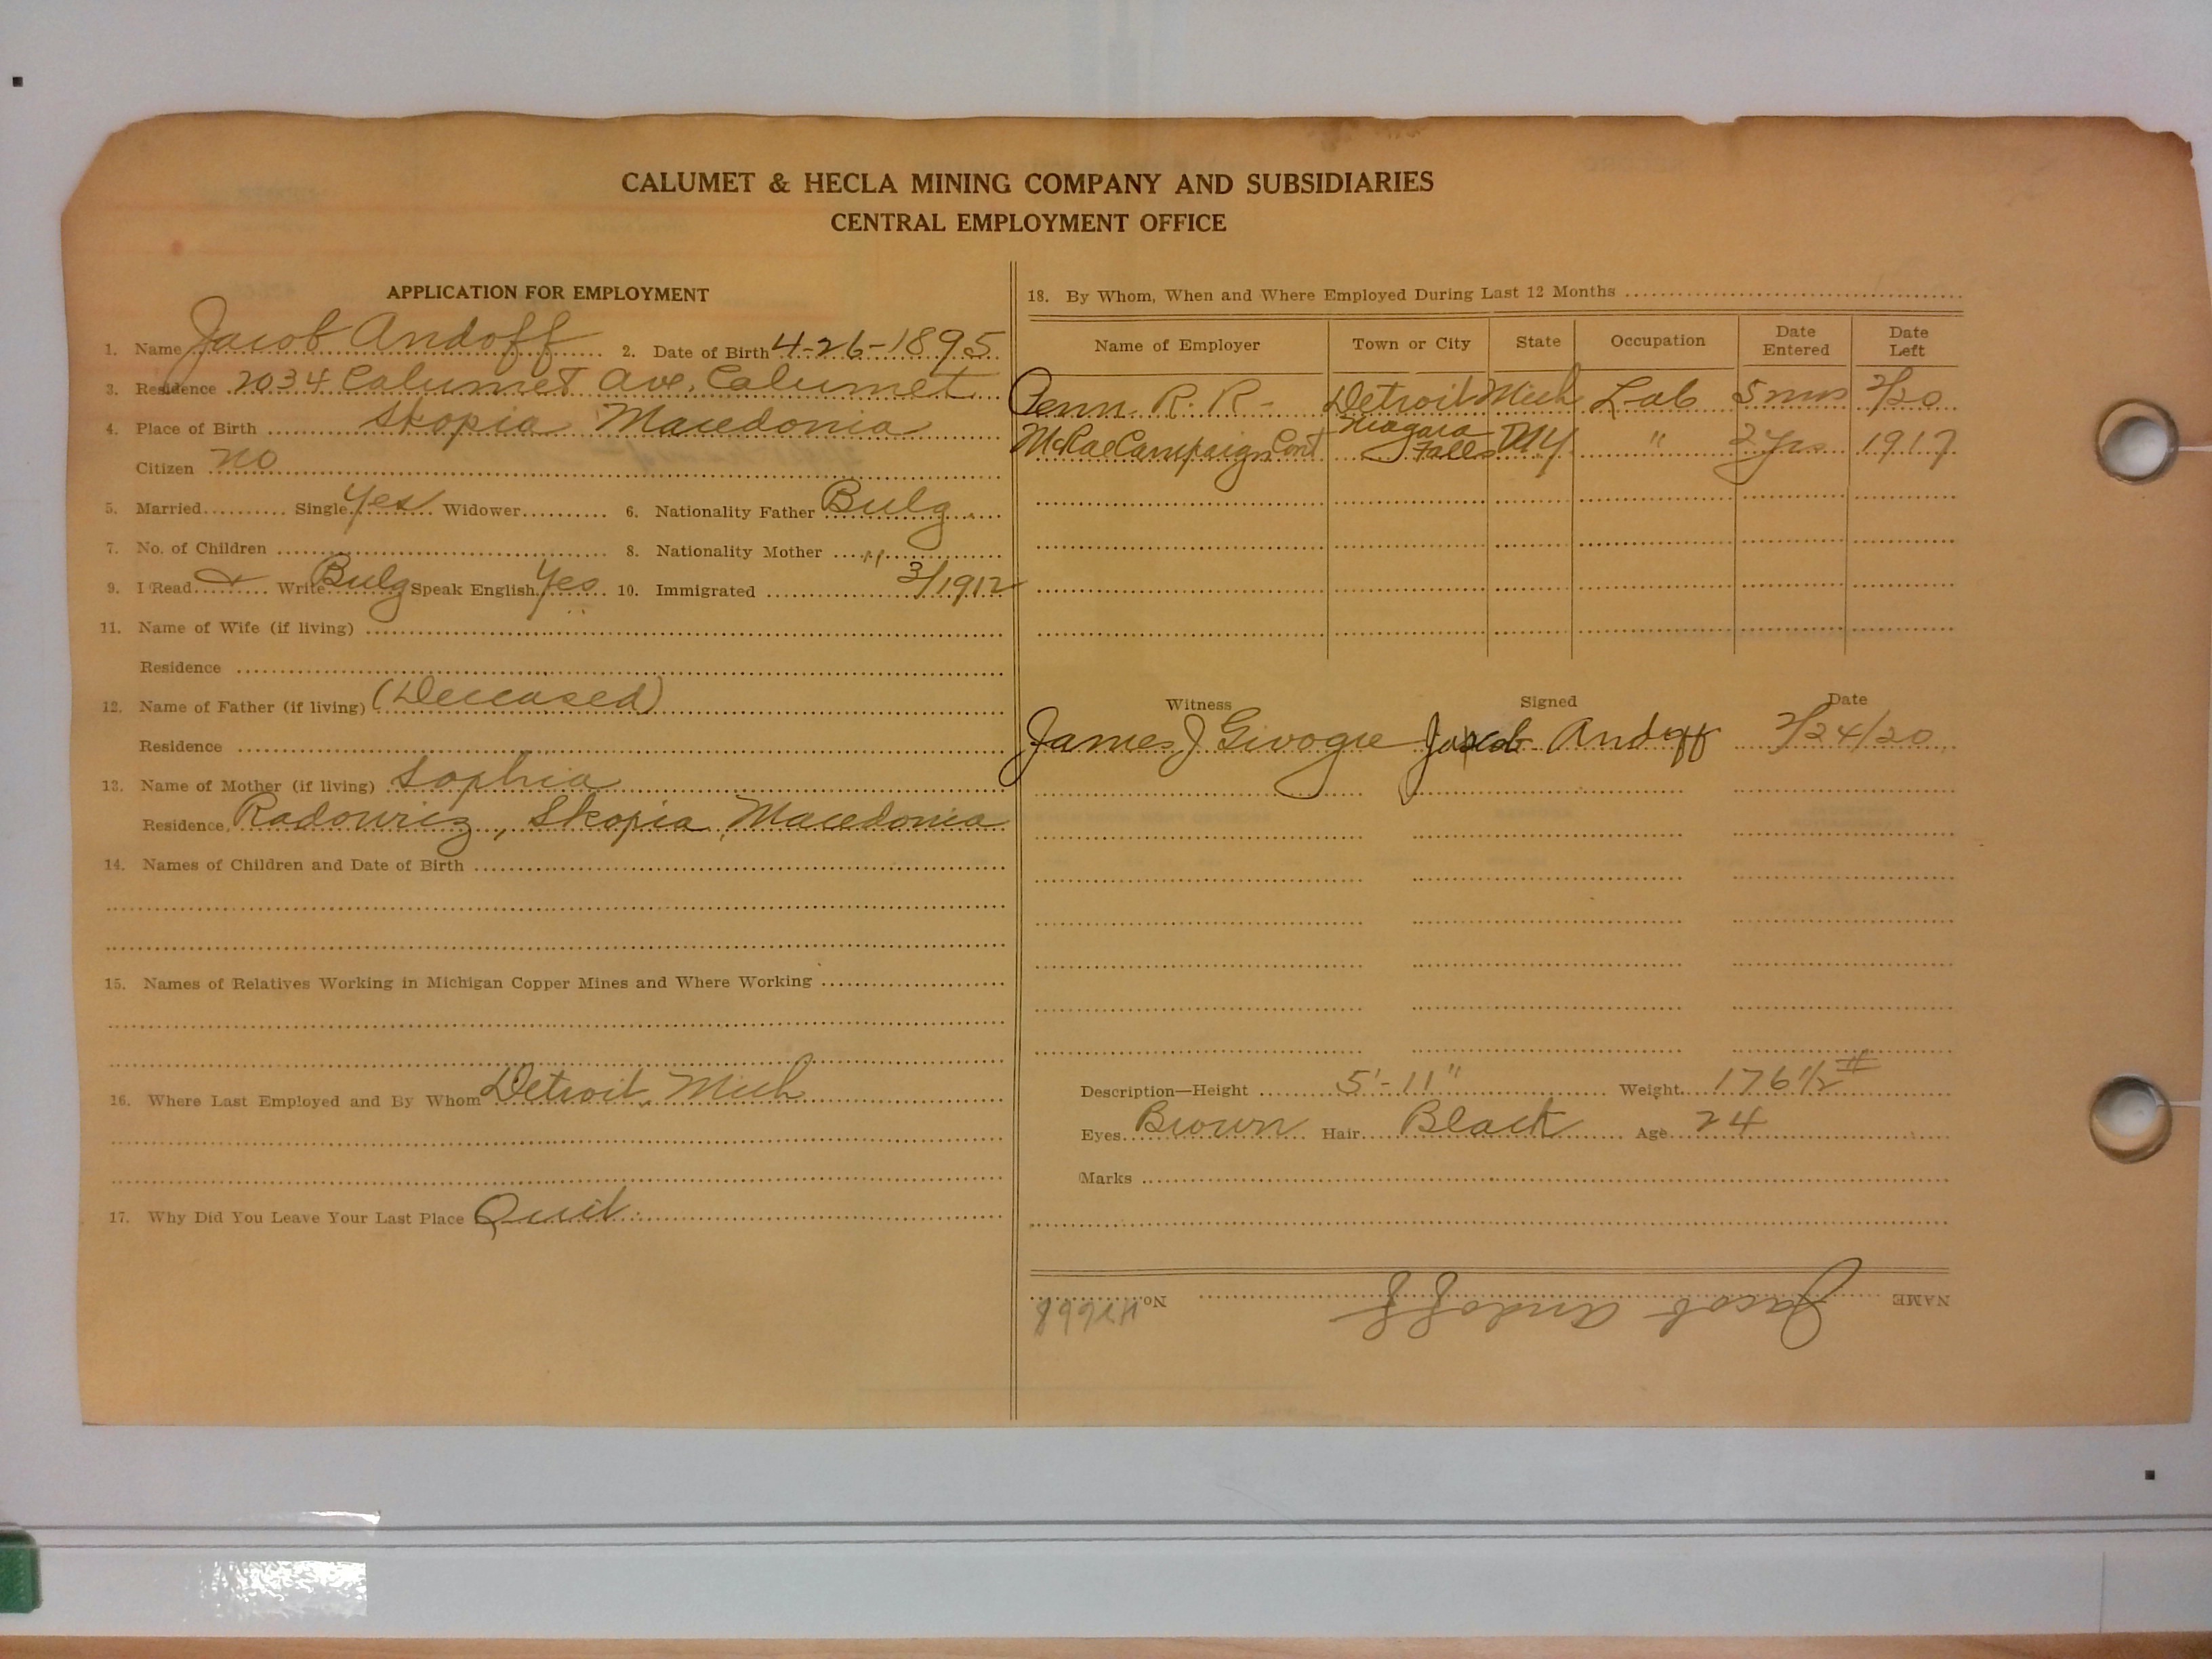 CALUMET & HECLA MINING COMPANY AND SUBSIDIARIES
CENTRAL EMPLOYMENT OFFICE
APPLICATION FOR EMPLOYMENT
1. Name Jacob Andoff 2. Date of Birth 4-26-1895
3. Residence 2034 Calumet Ave, Calumet
4. Place of Birth Skopia Macedonia
Citizen no
5. Married Single Yes Widower 6. Nationality Father Bulg
7. No. of Children 8. Nationality Mother "
9. I Read & Write Bulg Speak English Yes 10. Immigrated 3/1912
11. Name of Wife (if living)
Residence
12. Name of Father (if living) (Deceased)
Residence
13. Name of Mother (if living) Sophia
Residence Radowriz, Skopia, Macedonia
14. Names of Children and Date of Birth
15. Names of Relatives Working in Michigan Copper Mines and Where Working
16. Where Last Employed and By Whom Detroit, Mich
17. Why Did You Leave Your Last Place Quit
18. By Whom, When and Where Employed During Last 12 Months
Name of Employer Town or City State Occupation Date Entered Date Left
Penn. R. R. Detroit Mich Lab 5 mos 2/20
McRae Campaign Cont Niagara Falls N.Y. " 2 yrs 1917
Witness Signed Date
James J Jacob Andoff 2/24/20
Description—Height 5'-11" Weight 176 1/2 #
Eyes Brown Hair Black Age 24
Marks
NAME Jacob Andoff No.